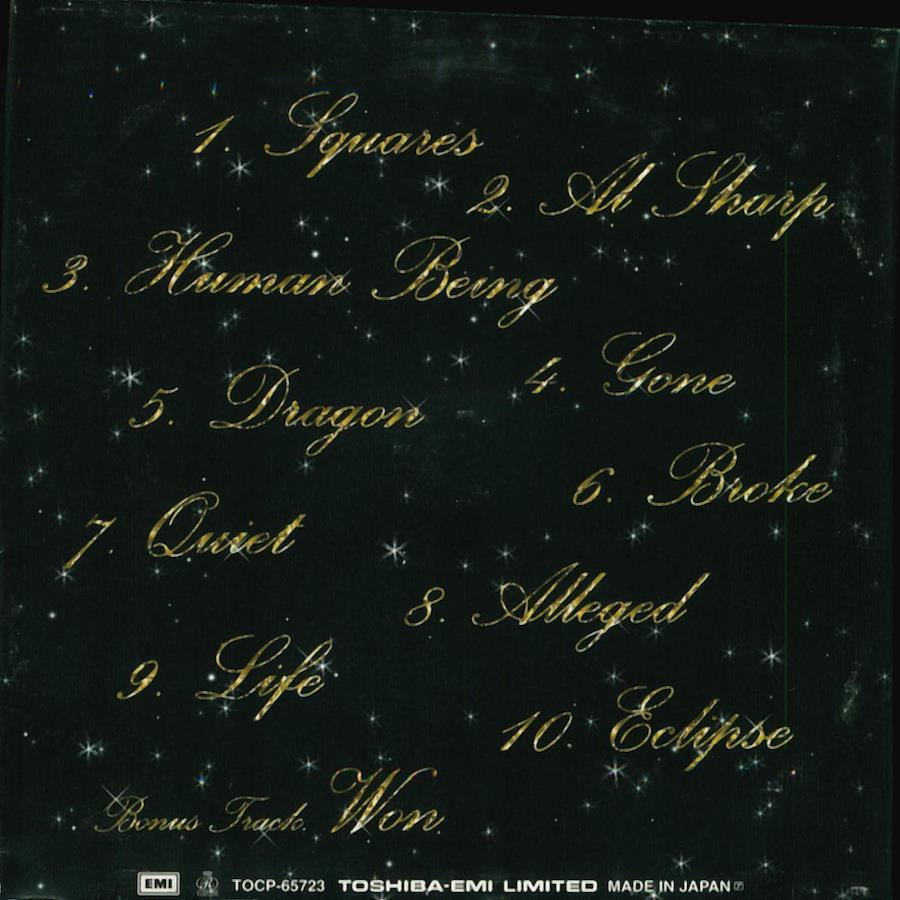 1. Squares
2. Al Sharp
3. Human Being
4. Gone
5. Dragon
6. Broke
7. Quiet
8. Alleged
9. Life
10. Eclipse
Bonus Track. Won
EMI R TOCP-65723 TOSHIBA-EMI LIMITED MADE IN JAPAN